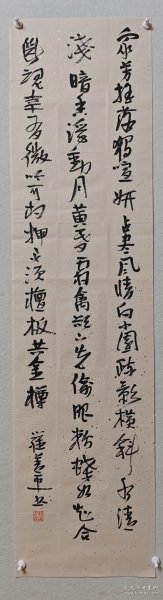 众芳摇落独喧妍占尽风情向小园疏影横斜水清
浅暗香浮动月黄昏霜禽欲下先偷眼粉蝶如知合
断魂幸有微吟可相狎不须檀板共金樽